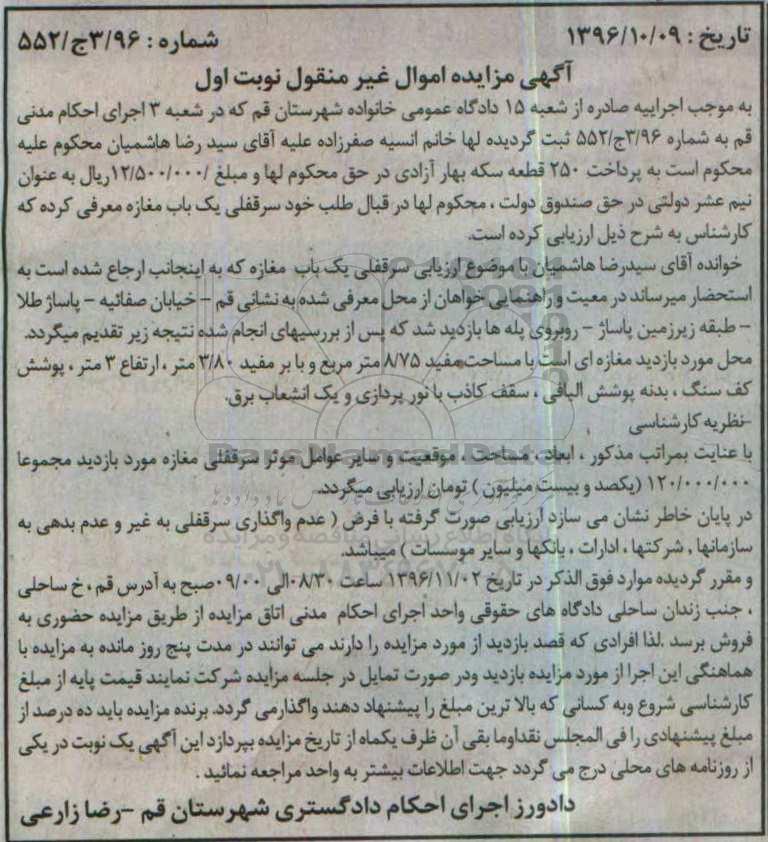 تاریخ : ۱۳۹۶/۱۰/۰۹
شماره : ۳/۹۶ج/۵۵۲
آگهی مزایده اموال غیر منقول نوبت اول
به موجب اجراییه صادره از شعبه ۱۵ دادگاه عمومی خانواده شهرستان قم که در شعبه ۳ اجرای احکام مدنی
قم به شماره ۳/۹۶ج/۵۵۲ ثبت گردیده لها خانم انسیه صفرزاده علیه آقای سید رضا هاشمیان محکوم علیه
محکوم است به پرداخت ۲۵۰ قطعه سکه بهار آزادی در حق محکوم لها و مبلغ /۱۲/۵۰۰/۰۰۰ریال به عنوان
نیم عشر دولتی در حق صندوق دولت ، محکوم لها در قبال طلب خود سرقفلی یک باب مغازه معرفی کرده که
کارشناس به شرح ذیل ارزیابی کرده است.
خوانده آقای سیدرضا هاشمیان با موضوع ارزیابی سرقفلی یک باب مغازه که به اینجانب ارجاع شده است به
استحضار میرساند در معیت و راهنمایی خواهان از محل معرفی شده به نشانی قم – خیابان صفائیه – پاساژ طلا
– طبقه زیرزمین پاساژ – روبروی پله ها بازدید شد که پس از بررسیهای انجام شده نتیجه زیر تقدیم میگردد.
محل مورد بازدید مغازه ای است با مساحت مفید ۸/۷۵ متر مربع و با بر مفید ۳/۸۰ متر ، ارتفاع ۳ متر ، پوشش
کف سنگ ، بدنه پوشش الیافی ، سقف کاذب با نور پردازی و یک انشعاب برق.
-نظریه کارشناسی
با عنایت بمراتب مذکور ، ابعاد ، مساحت ، موقعیت و سایر عوامل موثر سرقفلی مغازه مورد بازدید مجموعا
۱۲۰/۰۰۰/۰۰۰ (یکصد و بیست میلیون ) تومان ارزیابی میگردد.
در پایان خاطر نشان می سازد ارزیابی صورت گرفته با فرض ( عدم واگذاری سرقفلی به غیر و عدم بدهی به
سازمانها ، شرکتها ، ادارات ، بانکها و سایر موسسات ) میباشد.
و مقرر گردیده موارد فوق الذکر در تاریخ ۱۳۹۶/۱۱/۰۲ ساعت ۰۸/۳۰الی ۰۹/۰۰صبح به آدرس قم ، خ ساحلی
، جنب زندان ساحلی دادگاه های حقوقی واحد اجرای احکام مدنی اتاق مزایده از طریق مزایده حضوری به
فروش برسد .لذا افرادی که قصد بازدید از مورد مزایده را دارند می توانند در مدت پنج روز مانده به مزایده با
هماهنگی این اجرا از مورد مزایده بازدید ودر صورت تمایل در جلسه مزایده شرکت نمایند قیمت پایه از مبلغ
کارشناسی شروع وبه کسانی که بالا ترین مبلغ را پیشنهاد دهند واگذارمی گردد. برنده مزایده باید ده درصد از
مبلغ پیشنهادی را فی المجلس نقداوما بقی آن ظرف یکماه از تاریخ مزایده بپردازد این آگهی یک نوبت در یکی
از روزنامه های محلی درج می گردد جهت اطلاعات بیشتر به واحد مراجعه نمائید .
دادورز اجرای احکام دادگستری شهرستان قم –رضا زارعی
ParsNamadData